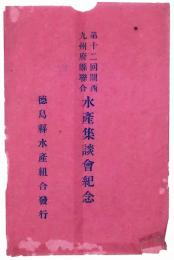 第十二回關西
九州府縣聯合
水產集談會紀念
德島縣水產組合發行